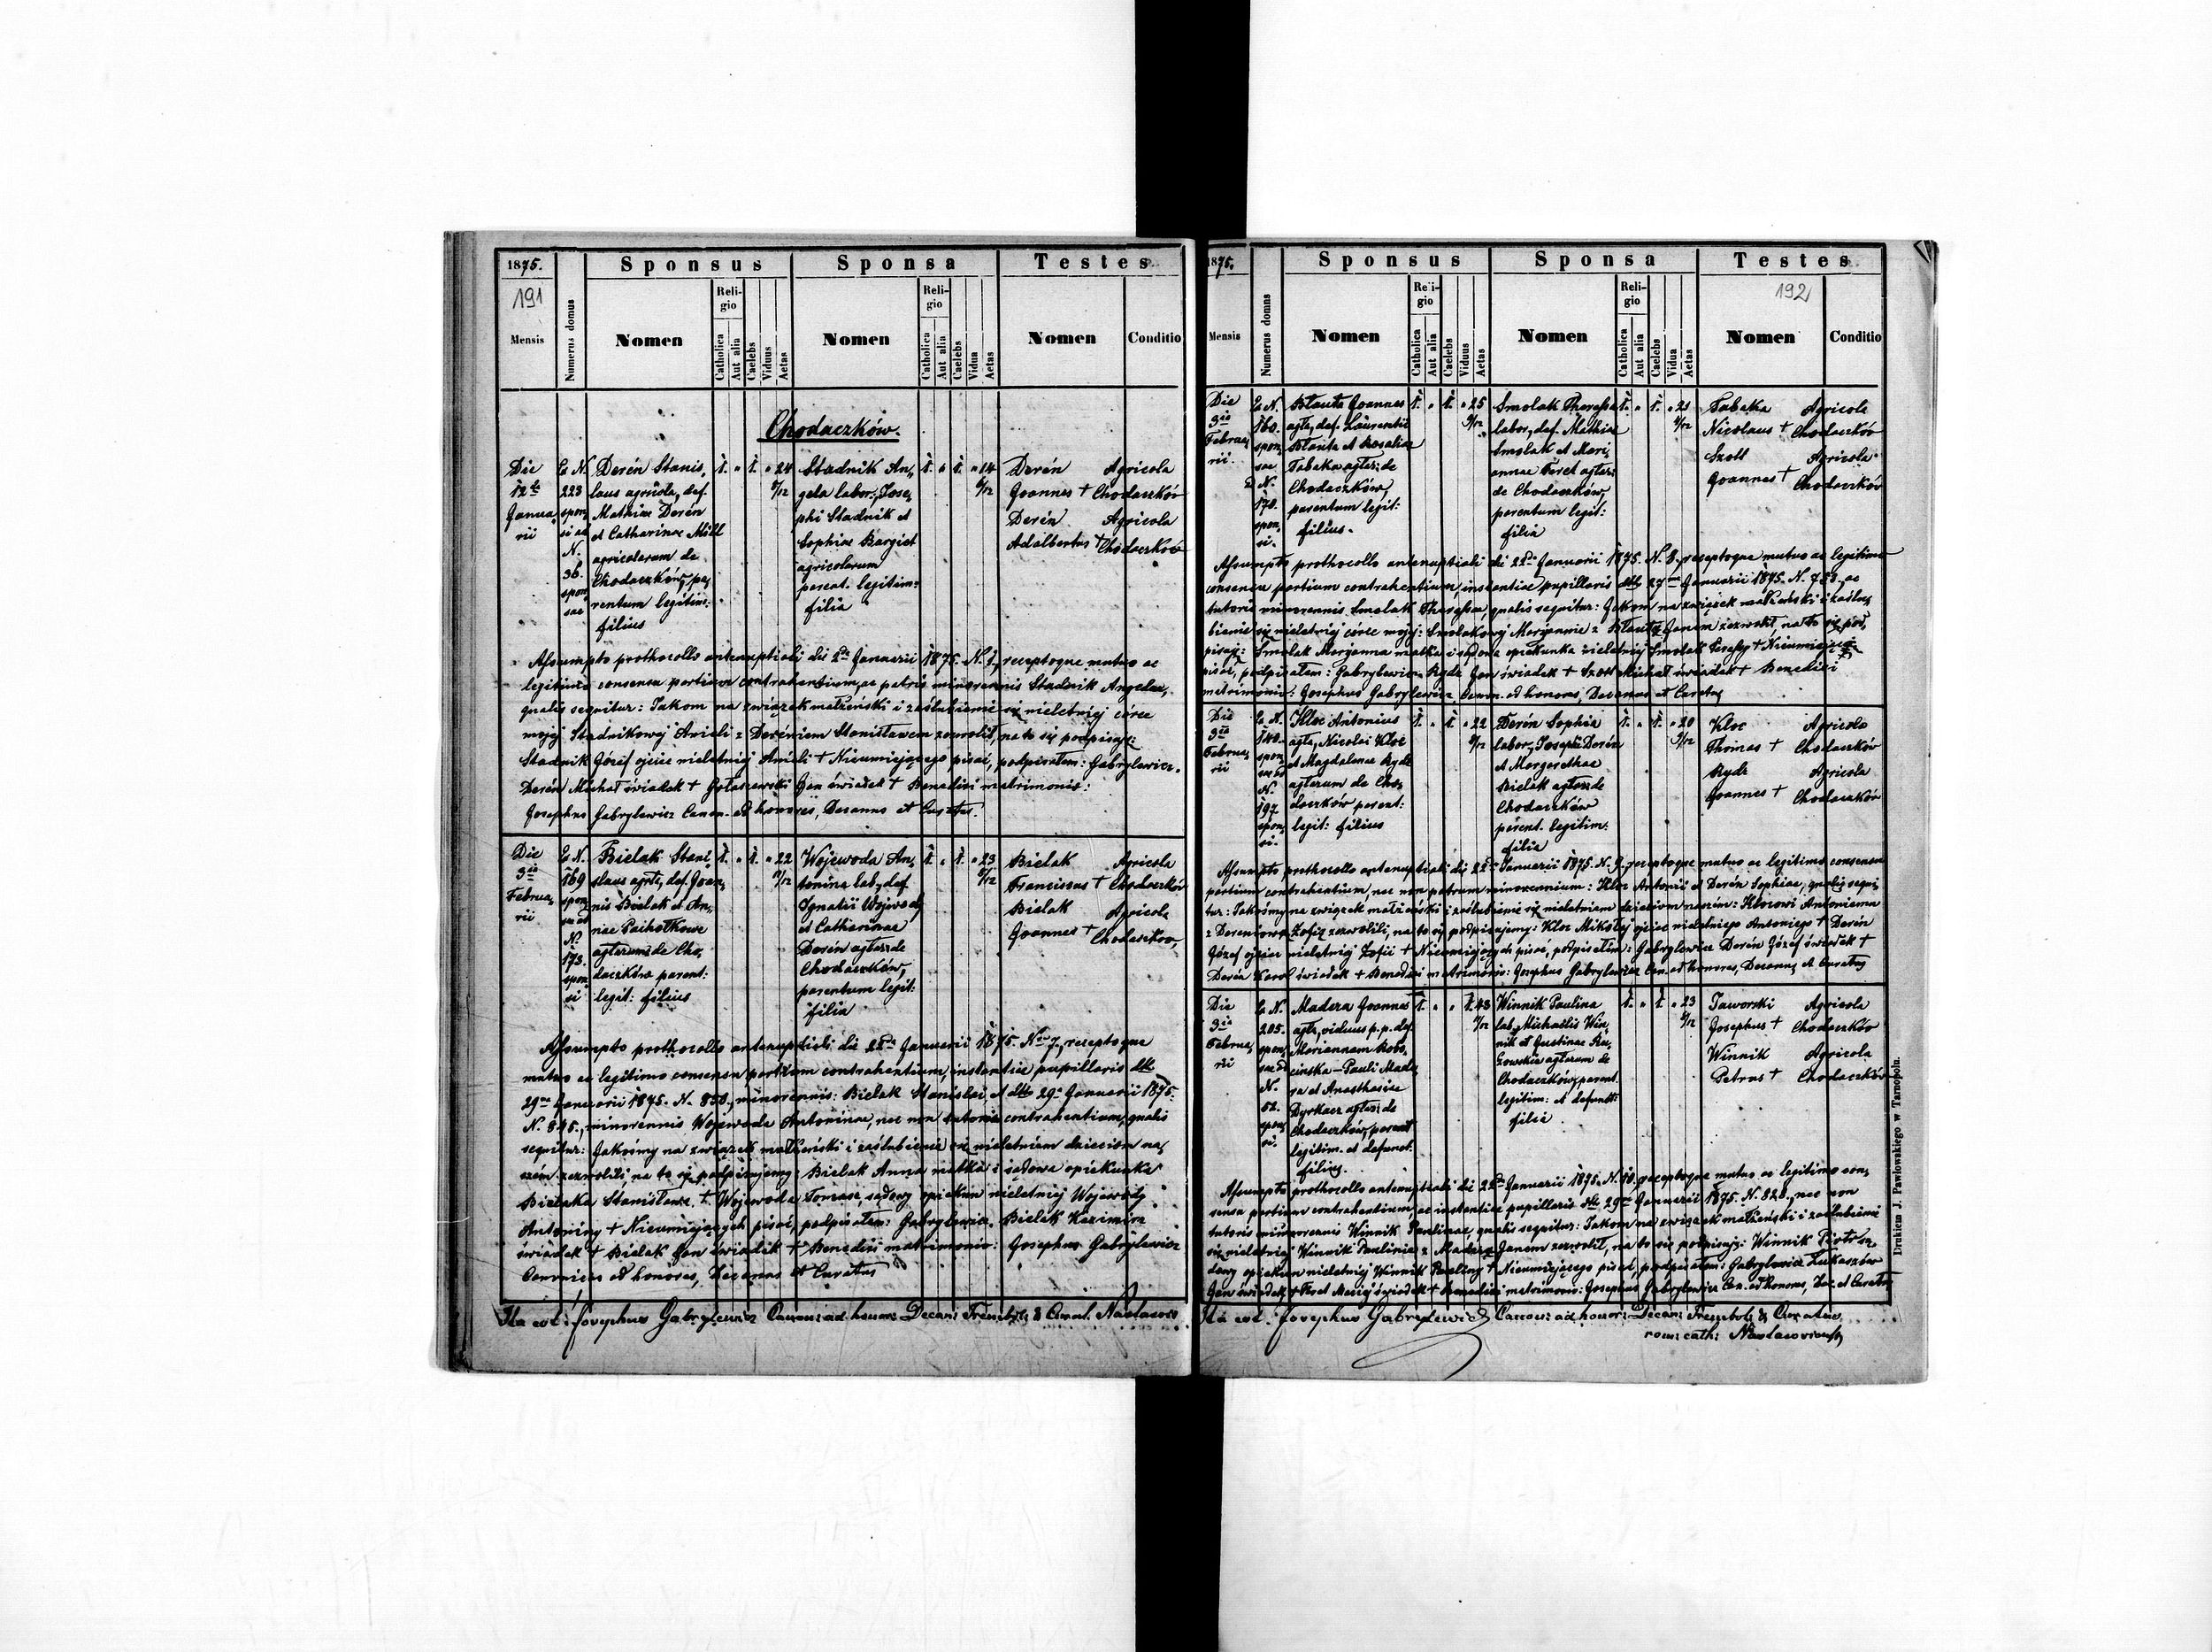 1875.
191
Mensis
Numerus domus
Sponsus
Nomen
Religio
Catholica
Aut alia
Caelebs
Viduus
Aetas
Sponsa
Nomen
Religio
Catholica
Aut alia
Caelebs
Vidua
Aetas
Testes
Nomen
Conditio
Chodaczków.
Die
12
Janua
rii
Ex N.
223
spon
si et
N.
36.
spon
sae
Derén Stanis
laus agricola, def.
Mathiae Derén
et Catharinae Möll
agricolarum de
Chodaczków, pa
rentum legitim:
filius
1. " 1. " 24
Stadnik An
gela labor, Jose
phi Stadnik et
Sophiae Bargiet
agricolarum
parent. legitim:
filia
1. " 1. " 14
6/12
Derén Agricola
Joannes + Chodaczków
Derén Agricola
Adalbertus + Chodaczków
Assumpto prothocollo antenuptiali die 2 Januarii 1875. N. 1, receptoque mutuo ac
legitimo consensu partium contrahentium, ac patris minorennis Stadnik Angelae,
qualis sequitur: Jakom na związek małżeński i zaślubienie się nieletniej córce
mojej Stadnikowej Anieli z Dereniem Stanisławem zezwolił, na to się podpisuję:
Stadnik Józef ojciec nieletniej Anieli + Nieumiejącego pisać, podpisałem: Gabrylewicz.
Derén Michał świadek + Gołaszewski Jan świadek + Benedixi matrimonio:
Josephus Gabrylewicz Canon. ad honores, Decanus et Curatus.
Die
3
Februa
rii
Ex N.
169
spon
sae et
N.
173.
spon
si
Bielak Stani
slaus agrla, def. Joan
nis Bielak et An
nae Pachołkowe
agrlarum de Cho
daczków, parent:
legit: filius
1. " 1. " 22
11/12
Wojewoda An
tonina lab, def.
Ignatii Wojewody
et Catharinae
Derén agler: de
Chodaczków,
parentum legit:
filia
1. " 1. " 23
Bielak Agricola
Franciscus + Chodaczków
Bielak Agricola
Joannes + Chodaczków
Assumpto prothocollo antenuptiali die 22 Januarii 1875. Nro 7, receptoque
mutuo ac legitimo consensu partium contrahentium, instantiae pupillaris dtto
29 Januarii 1875. N. 850., minorennis: Bielak Stanislai, et dtto 29 Januarii 1875.
N. 845., minorennis Wojewoda Antoninae, nec non tutoris contrahentium, qualis
sequitur: Jakośmy na związek małżeński i zaślubienie się nieletniem dzieciom na
szém zezwolili, na to się podpisujemy: Bielak Anna matka i sądowa opiekunka
Bielaka Stanisława. + Wojewoda Tomasz, sądowy opiekun nieletniej Wojewody
Antoniny + Nieumiejących pisać, podpisałem: Gabrylewicz. Bielak Kazimierz
świadek + Bielak Jan świadek + Benedixi matrimonio: Josephus Gabrylewicz
Canonicus ad honores, Decanus et Curatus
Ita est: Josephus Gabrylewicz Canon: ad honor: Decan: Trembowl: & Curat.
1875.
192
Mensis
Numerus domus
Sponsus
Nomen
Religio
Catholica
Aut alia
Caelebs
Viduus
Aetas
Sponsa
Nomen
Religio
Catholica
Aut alia
Caelebs
Vidua
Aetas
Testes
Nomen
Conditio
Die
3
Februa
rii.
Ex N.
160.
spon
sae
N.
170.
spon
si.
Błauta Joannes
agla, def. Laurentii
Błauta et Rosaliae
Tabaka agler: de
Chodaczków,
parentum legit:
filius.
1. " 1. " 25
Smolak Theressa
labor, def. Mathiae
Smolak et Mari
annae Foret agler:
de Chodaczków,
parentum legit:
filia
1. " 1. " 21
Tabaka Agricola
Nicolaus + Chodaczków
Szott Agricola
Joannes + Chodaczków
Assumpto prothocollo antenuptiali die 22 Januarii 1875. N. 8., receptoque mutuo ac legitimo
consensu partium contrahentium, instantiae pupillaris dtto 27 Januarii 1875. N. 753. ac
tutoris minorennis Smolak Theressae, qualis sequitur: Jakom na związek małżeński i zaślu
bienie się nieletniej córce mojej: Smolakowej Maryannie z Błautą Janem zezwolił, na to się pod
pisuję: Smolak Maryanna matka i sądowa opiekunka nieletniej Smolak + Nieumiejącej
pisać, podpisałem: Gabrylewicz. Rydz Jan świadek + Szott Michał świadek + Benedixi
matrimonio: Josephus Gabrylewicz, Canon. ad honores, Decanus et Curatus
Die
3
Februa
rii
Ex N.
140.
spon
sae et
N.
197.
spon
si.
Kloc Antonius
agla, Nicolai Kloc
et Magdalenae Rydz
aglarum de Cho
daczków parent:
legit: filius
1. " 1. " 22
Derén Sophia
labor, Josephi Derén
et Margarethae
Bielak agler: de
Chodaczków
parent. legitim:
filia
1. " 1. " 20
Kloc Agricola
Thomas + Chodaczków
Rydz Agricola
Joannes + Chodaczków
Assumpto prothocollo antenuptiali die 22 Januarii 1875. N. 9. receptoque mutuo ac legitimo consensu
partium contrahentium, nec non patrum minorennium: Kloc Antonii et Derén Sophiae, qualis sequi
tur: Jakośmy na związek małżeński i zaślubienie się nieletniem dzieciom naszém: Klocowi Antoniemu
z Dereniowną Zofią zezwolili, na to się podpisujemy: Kloc Mikołaj ojciec nieletniego Antoniego + Derén
Józef ojciec nieletniej Zofii + Nieumiejących pisać, podpisałem: Gabrylewicz Derén Józef świadek +
Derén Karol świadek + Benedixi matrimonio: Josephus Gabrylewicz Can. ad honores, Decanus et Curatus
Die
3
Februa
rii
Ex N.
205.
spon
sae et
N.
52.
spon
si.
Madera Joannes
agla, viduus p. p. def.
Mariannam Robo
cinska – Pauli Made
ra et Anasthasiae
Dyrkacz agler: de
Chodaczków, parent
legitim. et defunct.
filius.
1. " " 1. 43
Winnik Paulina
lab, Michaelis Win
nik et Justinae Ru
szowska aglarum de
Chodaczków, parent.
legitim: et defunct:
filia
1. " 1. " 23
Jaworski Agricola
Josephus + Chodaczków
Winnik Agricola
Petrus + Chodaczków
Assumpto prothocollo antenuptiali die 22 Januarii 1875. N. 10. receptoque mutuo ac legitimo con
sensu partium contrahentium, ac instantiae pupillaris dtto 29 Januarii 1875. N. 820., nec non
tutoris minorennis Winnik Paulinae, qualis sequitur: Jakom na związek małżeński i zaślubienie
się nieletniej Winnik Paulinie z Maderą Janem zezwolił, na to się podpisuję: Winnik Piotr są
dowy opiekun nieletniej Winnik Pauliny + Nieumiejącego pisać, podpisałem: Gabrylewicz Łukaszów
Jan świadek + Foret Maciej świadek + Benedixi matrimonio: Josephus Gabrylewicz Can. ad honores, Dec. et Curatus
Ita est. Josephus Gabrylewicz Canon: ad honor: Decan: Trembowl: & Curatus
rom: cath:
Drukiem J. Pawłowskiego w Tarnopolu.